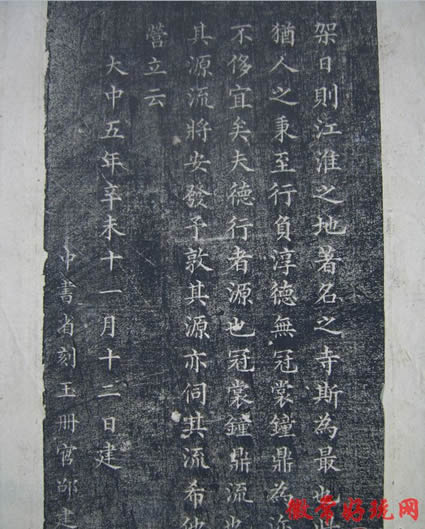 架日則江淮之地著名之寺斯為最也
猶人之秉至行負淳德無冠裳鐘鼎為
不侈宜矣夫德行者源也冠裳鐘鼎流也
其源流將安發予敦其源亦伺其流希
營立云
大中五年辛未十一月十二日建
中書省刻玉冊官邵建
徽常好玩网